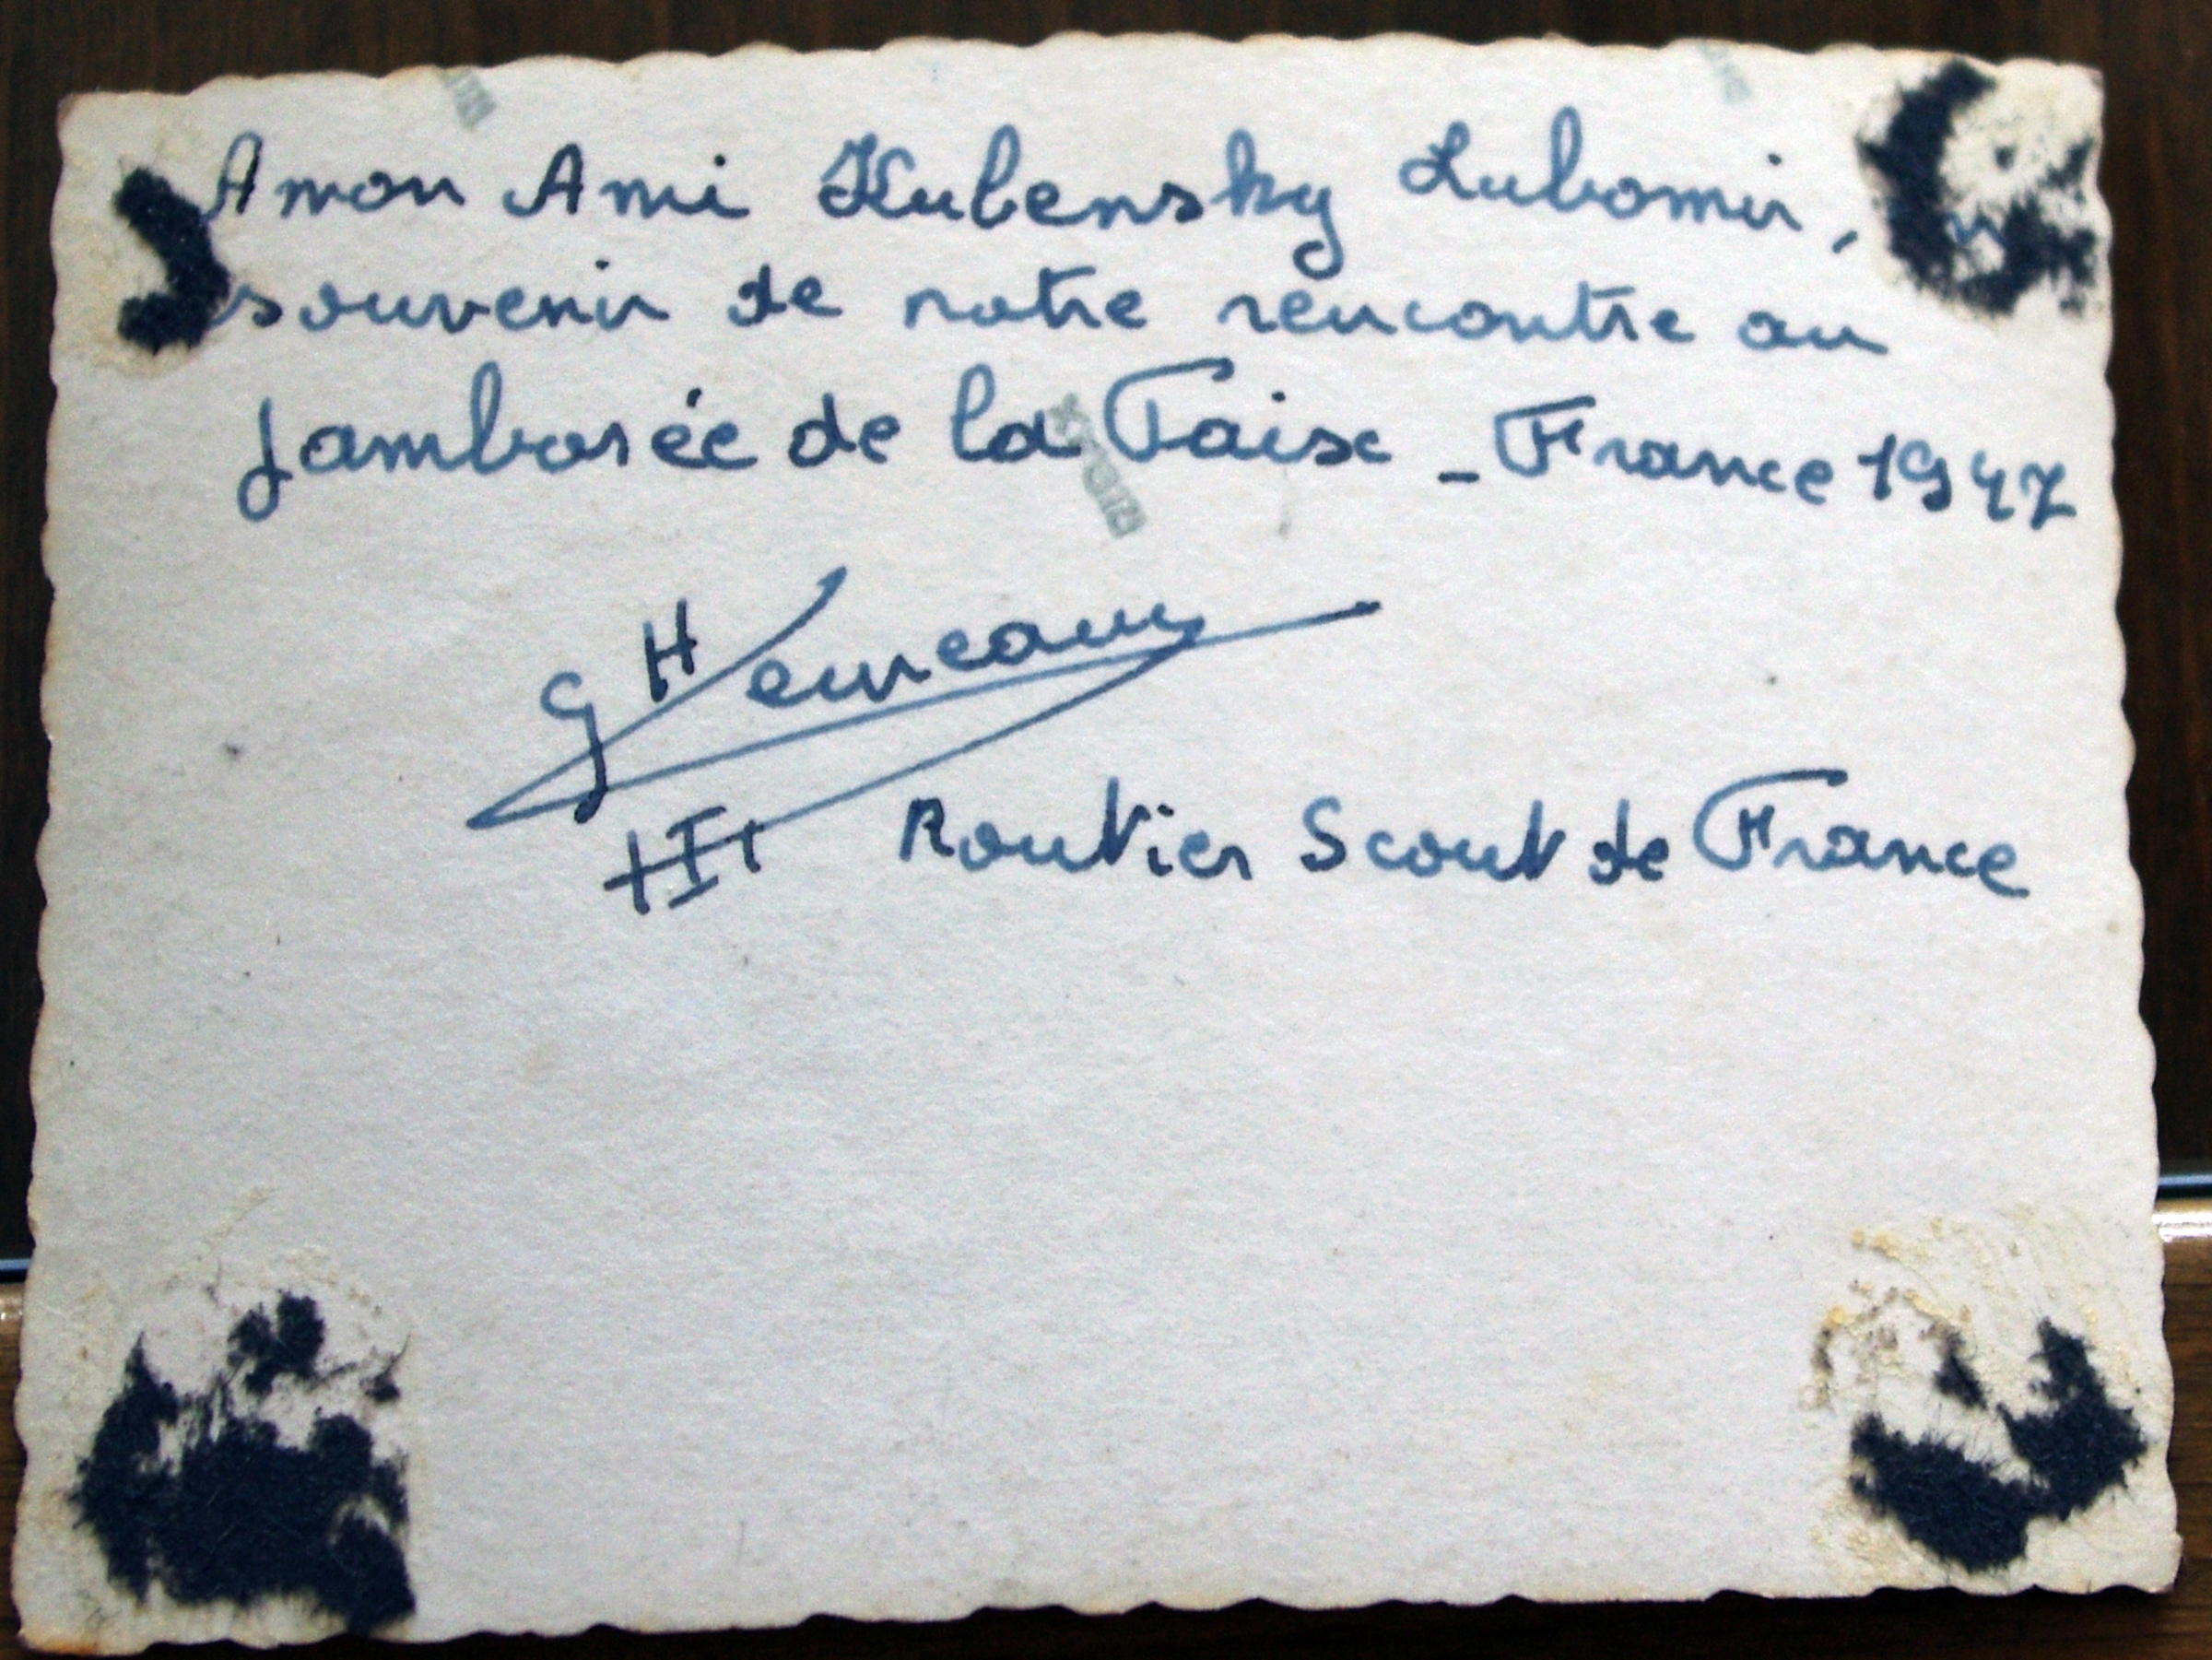 A mon Ami Kubensky Lubomir,
souvenir de notre rencontre au
Jamborée de la Paix - France 1947
Routier Scout de France